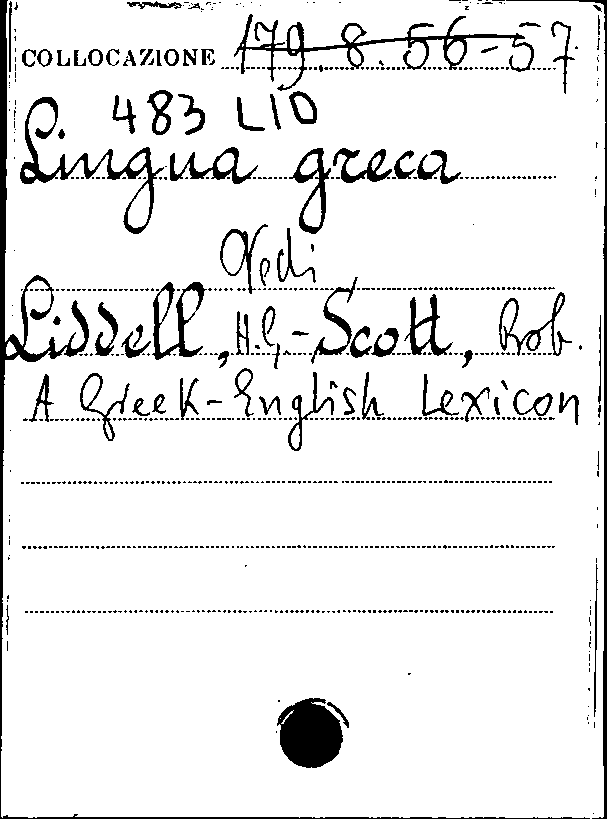 COLLOCAZIONE 179.8.56-57
483 LID
Lingua greca
Vedi
Liddell, H.G.-Scott, Rob.
A Greek-English Lexicon